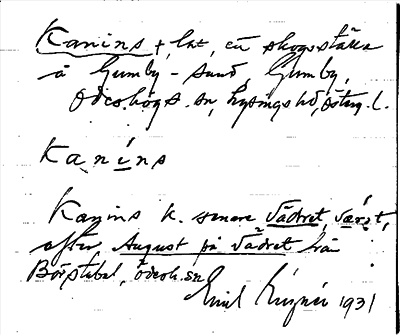 Kanins, + lht, en skogsställe
å Gumby-sund, Gumby,
Ödeshögs sn, Lysings hd, Östeg. l.
Kanins
Kanins k. senare Vädret, Väret,
efter August på Vädret från
Ödesh. sn
Emil 1931